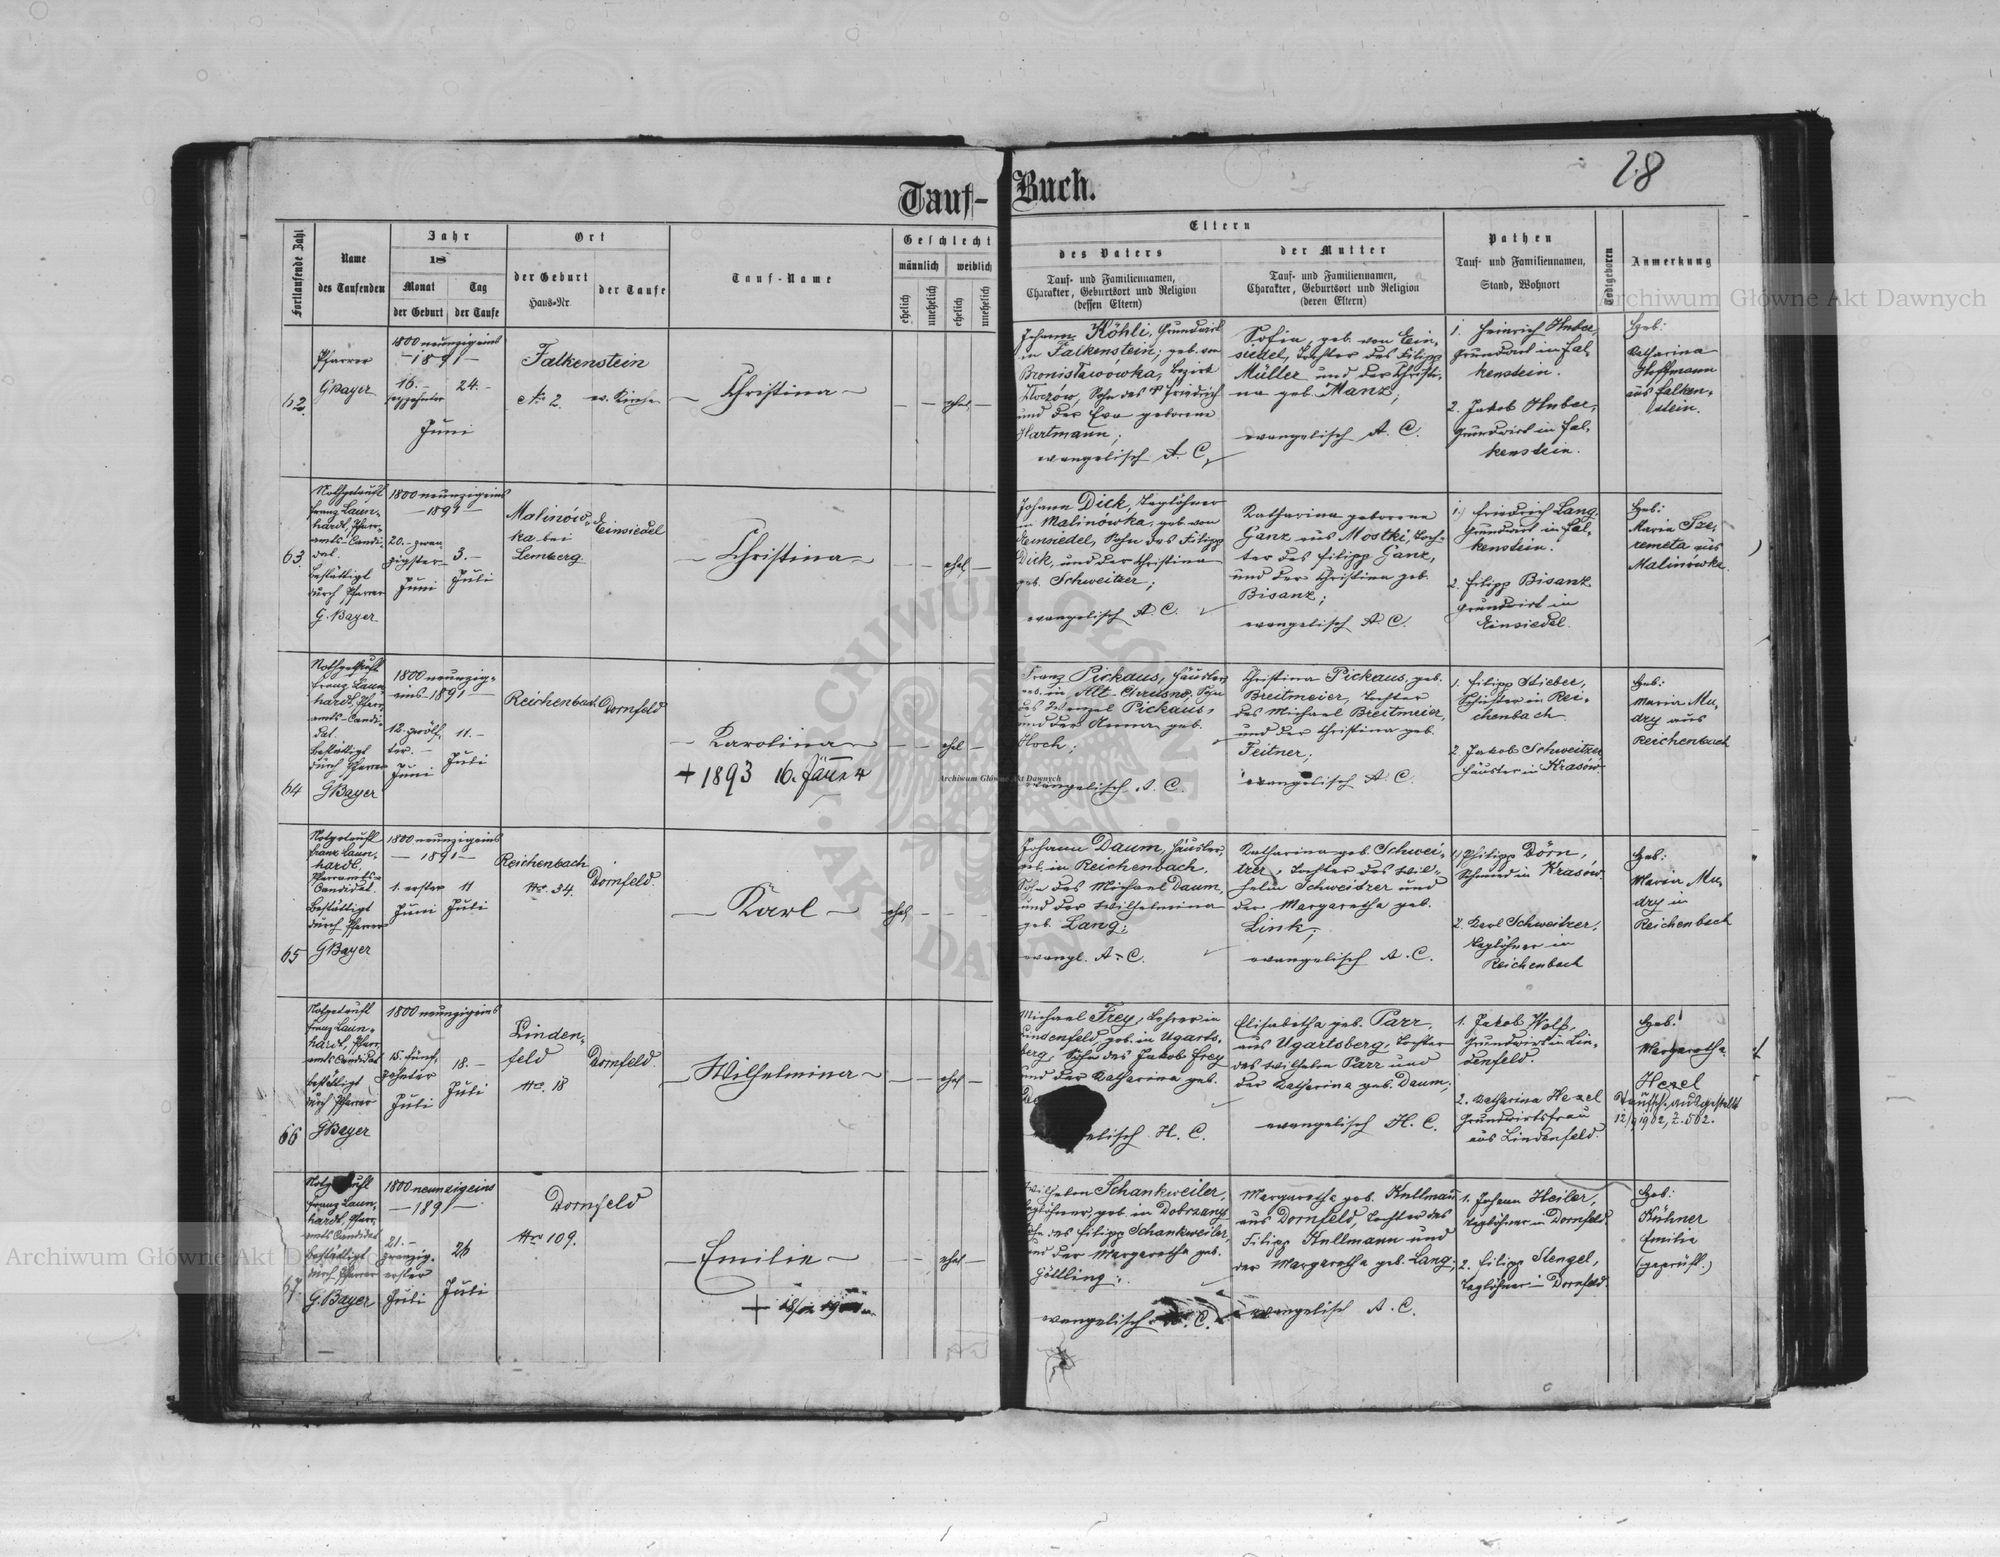 28
Tauf-Buch.
Fortlaufende Zahl
Name
des Taufenden
Jahr
18
Monat
der Geburt
Tag
der Taufe
Ort
der Geburt
Haus-Nr.
der Taufe
Tauf-Name
Geschlecht
männlich
weiblich
ehelich
unehelich
ehelich
unehelich
Eltern
des Vaters
Tauf- und Familiennamen,
Charakter, Geburtsort und Religion
(dessen Eltern)
der Mutter
Tauf- und Familiennamen,
Charakter, Geburtsort und Religion
(deren Eltern)
Pathen
Tauf- und Familiennamen,
Stand, Wohnort
Todtgeboren
Anmerkung
62
Pfarrer
GBayer
1800 neunzigeins
— 1891 —
16. —
sechzehnter
Juni
24. —
Falkenstein
No 2.
ev. Kirche
— Christina —
— — ehel. —
Johann Köhli, Grundwirt
in Falkenstein; geb. von
Bronisławowka, Bezirk
Złoczów, Sohn des Friedrich
und der Eva geborene
Hartmann;
evangelisch A. C.
Sofia, geb. von Ein-
siedel, Tochter des Filipp
Müller und der Christi-
na geb. Manz;
evangelisch A. C.
1. Heinrich Huber,
Grundwirt in Fal-
kenstein.
2. Jakob Huber,
Grundwirt in Fal-
kenstein.
Heb:
Katharina
Hoffmann
aus Falken-
stein.
63.
Nothgetauft
Franz Laun-
hardt, Pfarr-
amts-Candi-
dat.
Bestättigt
durch Pfarrer
G. Bayer
1800 neunzigeins
— 1891 —
20. — zwan-
zigster —
Juni
3. —
Juli
Malinów-
ka bei
Lemberg
Einsiedel
— Christina —
— — ehel. —
Johann Dick, Taglöhner
in Malinówka, geb. von
Einsiedel, Sohn des Filipp
Dick, und der Christina
geb. Schweitzer;
evangelisch A. C.
Katharina geborene
Ganz aus Mostki, Toch-
ter des Filipp Ganz,
und der Christina geb.
Bisanz;
evangelisch A. C.
1.) Friedrich Lang
Grundwirt in Fal-
kenstein.
2. Filipp Bisanz
Grundwirt in
Einsiedel.
Heb:
Maria Sze-
remeta aus
Malinówka.
64
Nothgetauft
Franz Laun-
hardt, Pfarr-
amts-Candi-
dat.
Bestättigt
durch Pfarrer
GBayer
1800 neunzig-
eins — 1891 —
12. zwölf-
ter. —
Juni
11. —
Juli
Reichenbach
Dornfeld
— Karolina —
+ 1893 16. Jänner
— — ehel —
Franz Pickaus, Häusler,
geb. in Alt-Chrusno, Sohn
des Wenzel Pickaus,
und der Anna geb.
Hoch;
evangelisch A. C.
Christina Pickaus, geb.
Breitmeier, Tochter
des Michael Breitmeier,
und der Christina geb.
Feitner;
evangelisch A. C.
1. Filipp Stieber,
Schuster in Rei-
chenbach
2. Jakob Schweitzer
Häusler in Krasów.
Heb:
Maria Mu-
dry aus
Reichenbach
65
Notgetauft
Franz Laun-
hardt,
Pfarramts-
Candidat.
Bestättigt
durch Pfarrer
GBayer
1800 neunzigeins
— 1891 —
1. erster
Juni
11
Juli
Reichenbach
No. 34.
Dornfeld.
— Karl —
ehel — — —
Johann Daum, Häusler,
geb. in Reichenbach,
Sohn des Michael Daum,
und der Wilhelmina
geb. Lang;
evangl. A. C.
Katharina geb. Schwei-
tzer, Tochter des Wil-
helm Schweitzer und
der Margaretha geb.
Link;
evangelisch A. C.
1) Philipp Dörn,
Schmied in Krasów.
2. Karl Schweitzer,
Taglöhner in
Reichenbach
Heb:
Maria Mu-
dry in
Reichenbach
66
Notgetauft
Franz Laun-
hardt, Pfarr-
amts Candidat
bestättigt
durch Pfarrer
GBayer
1800 neunzigeins
15. fünf-
zehnter
Juli
18. —
Juli
Linden-
feld
No. 18
Dornfeld.
— Wilhelmina —
— — ehel —
Michael Frey, Lehrer in
Lindenfeld, geb. in Ugarts-
berg, Sohn des Jakob Frey
und der Katharina geb.
evangelisch H. C.
Elisabetha geb. Parr,
aus Ugartsberg, Tochter
des Wilhelm Parr und
der Katharina geb. Daum;
evangelisch H. C.
1. Jakob Wolf,
Grundwirt in Lin-
denfeld.
2. Katharina Hexel
Grundwirtsfrau
aus Lindenfeld.
Heb:
Margaretha
Hexel
Taufsch. ausgestellt
12/9 1902, Z. 502.
67.
Notgetauft
Franz Laun-
hardt, Pfarr-
amts Candidat
bestättigt
durch Pfarrer
G. Bayer
1800 neunzigeins
— 1891 —
21. —
zwanzig-
erster
Juli
26
Juli
Dornfeld
No 109.
— Emilie —
— — ehel —
Wilhelm Schankweiler,
Taglöhner, geb. in Dobrzany
Sohn des Filipp Schankweiler,
und der Margaretha geb.
Göttling;
evangelisch A. C.
Margaretha geb. Kullmann
aus Dornfeld, Tochter des
Filipp Kullmann und
der Margaretha geb. Lang;
evangelisch A. C.
1. Johann Heiler,
Taglöhner in Dornfeld
2. Filipp Stengel,
Taglöhner in Dornfeld
Heb:
Kühner
Emilie
(geprüft.)
Archiwum Główne Akt Dawnych
Archiwum Główne Akt Dawnych
Archiwum Główne Akt Dawnych
ARCHIWUM GŁÓWNE
AKT DAWNYCH